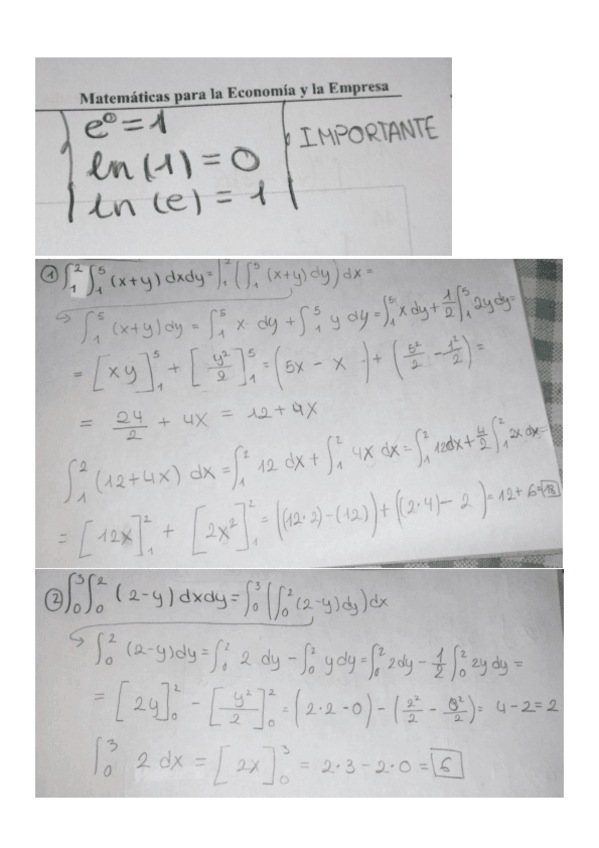 Matemáticas para la Economía y la Empresa
e⁰ = 1
ln (1) = 0
ln (e) = 1
IMPORTANTE
① ∫₁² ∫₁⁵ (x+y) dxdy = ∫₁² (∫₁⁵ (x+y) dy) dx =
↪ ∫₁⁵ (x+y) dy = ∫₁⁵ x dy + ∫₁⁵ y dy = ∫₁⁵ x dy + 1/2 ∫₁⁵ 2y dy =
= [xy]₁⁵ + [y²/2]₁⁵ = (5x - x) + (5²/2 - 1²/2) =
= 24/2 + 4x = 12 + 4x
∫₁² (12+4x) dx = ∫₁² 12 dx + ∫₁² 4x dx = ∫₁² 12dx + 4/2 ∫₁² 2x dx =
= [12x]₁² + [2x²]₁² = ((12·2) - (12)) + ((2·4) - 2) = 12 + 6 = 18
② ∫₀³ ∫₀² (2-y) dxdy = ∫₀³ (∫₀² (2-y) dy) dx
↪ ∫₀² (2-y) dy = ∫₀² 2 dy - ∫₀² y dy = ∫₀² 2dy - 1/2 ∫₀² 2y dy =
= [2y]₀² - [y²/2]₀² = (2·2-0) - (2²/2 - 0²/2) = 4-2 = 2
∫₀³ 2 dx = [2x]₀³ = 2·3 - 2·0 = 6